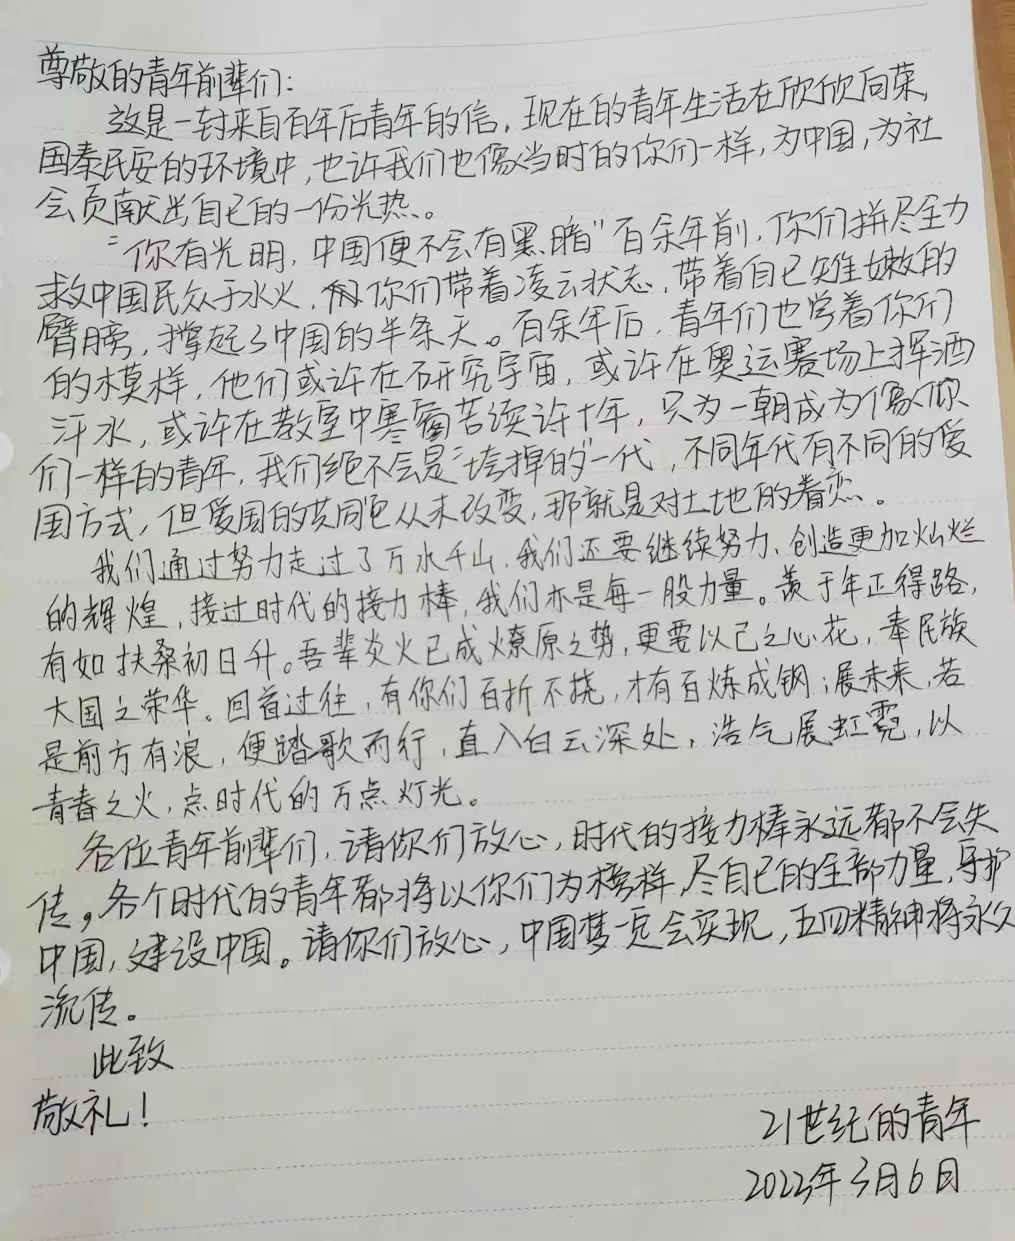 尊敬的青年前辈们：
这是一封来自百年后青年的信，现在的青年生活在欣欣向荣，
国泰民安的环境中，也许我们也像当时的你们一样，为中国，为社
会贡献出自己的一份光热。
“你有光明，中国便不会有黑暗”百余年前，你们拼尽全力
救中国民众于水火，你们带着凌云状志，带着自己雉嫩的
臂膀，撑起了中国的半条天。百余年后，青年们也学着你们
的模样，他们或许在研究宇宙，或许在奥运赛场上挥洒
汗水，或许在教室中寒窗苦读许十年，只为一朝成为像你
们一样的青年，我们绝不会是“垮掉的”一代，不同年代有不同的爱
国方式，但爱国的共同色从未改变，那就是对土地的眷恋。
我们通过努力走过了万水千山，我们还要继续努力、创造更加灿烂
的辉煌，接过时代的接力棒，我们亦是每一股力量。羡于年正得路，
有如扶桑初日升。吾辈炎火已成燎原之势，更要以己之心花，奉民族
大国之荣华。回首过往，有你们百折不挠，才有百炼成钢；展未来，若
是前方有浪，便踏歌而行，直入白云深处，浩气展虹霓，以
青春之火，点时代的万点灯光。
各位青年前辈们，请你们放心，时代的接力棒永远都不会失
传，各个时代的青年都将以你们为榜样，尽自己的全部力量，守护
中国，建设中国。请你们放心，中国梦一定会实现，五四精神将永久
流传。
此致
敬礼！
21世纪的青年
2023年3月6日